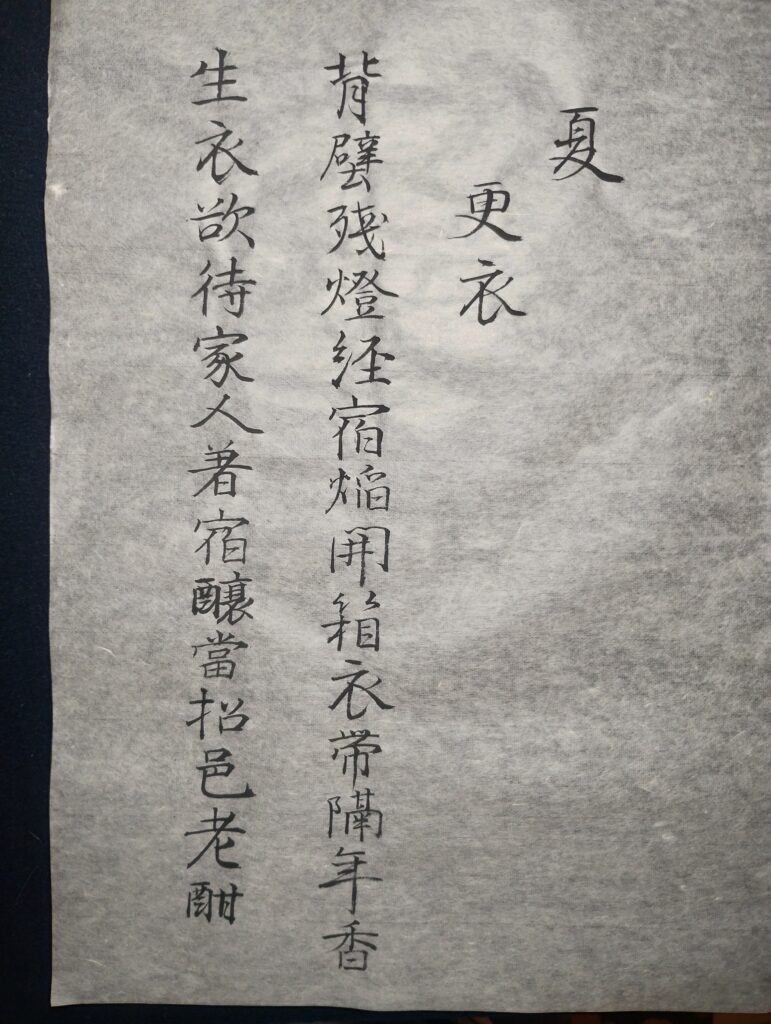 夏
更衣
背壁残燈経宿焔開箱衣帯隔年香
生衣欲待家人著宿釀當招邑老酣